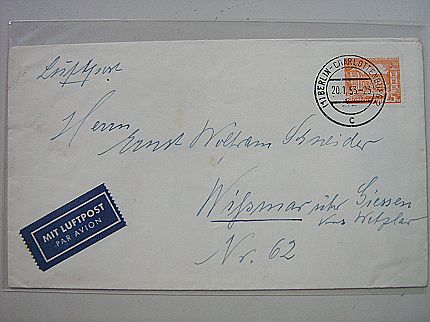 Luftpost
(1) BERLIN-CHARLOTTENBURG 2
20.1.53-23
C
Herrn
Ernst Wolfram Schneider
Wißmar über Giessen
Krs Wetzlar
Nr. 62
MIT LUFTPOST
PAR AVION